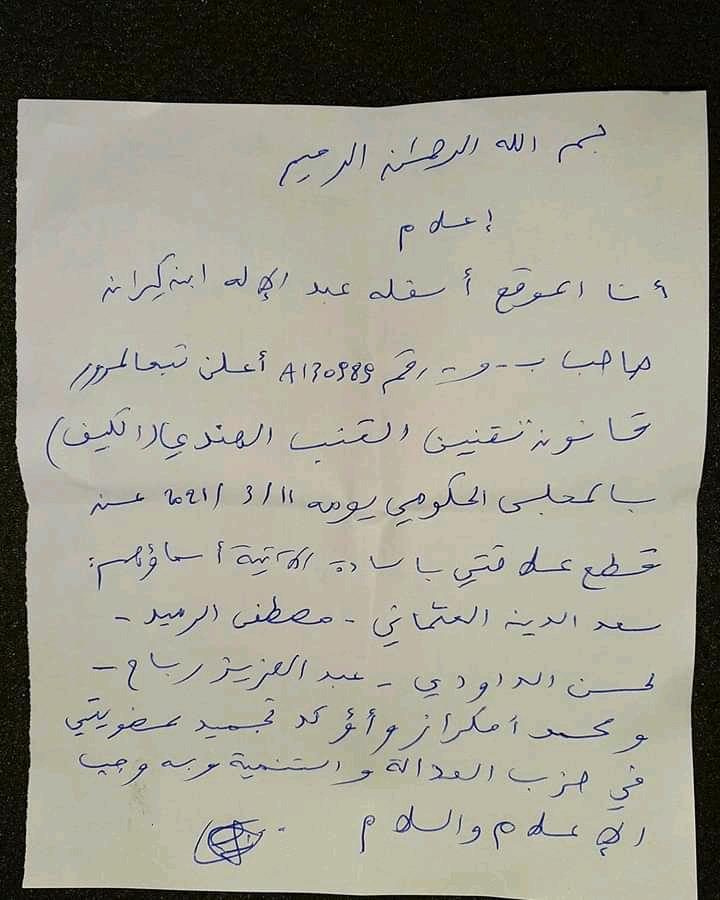 بسم الله الرحمن الرحيم
إعلام
أنا الموقع أسفله عبد الإله ابن كيران
صاحب ب-و- رقم A130989 أعلن تبعا لمرور
قانون تقنين القنب الهندي (الكيف)
بالمجلس الحكومي يومه 11/3/2021 عن
قطع علاقتي بالسادة الآتية أسماؤهم:
سعد الدين العثماني - مصطفى الرميد -
لحسن الداودي - عبد العزيز رباح -
ومحمد أمكراز وأؤكد تجميد عضويتي
في حزب العدالة والتنمية وبه وجب
الإعلام والسلام.